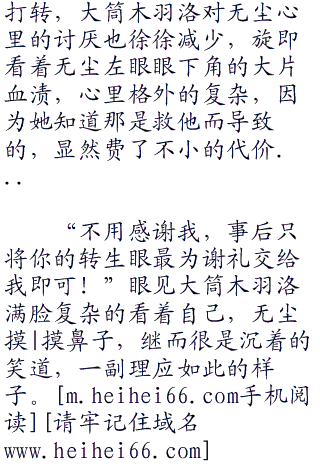 打转，大筒木羽洛对无尘心
里的讨厌也徐徐减少，旋即
看着无尘左眼眼下角的大片
血渍，心里格外的复杂，因
为她知道那是救他而导致
的，显然费了不小的代价.
..
“不用感谢我，事后只
将你的转生眼最为谢礼交给
我即可！”眼见大筒木羽洛
满脸复杂的看着自己，无尘
摸|摸鼻子，继而很是沉着的
笑道，一副理应如此的样
子。[m.heihei66.com手机阅
读][请牢记住域名
www.heihei66.com]